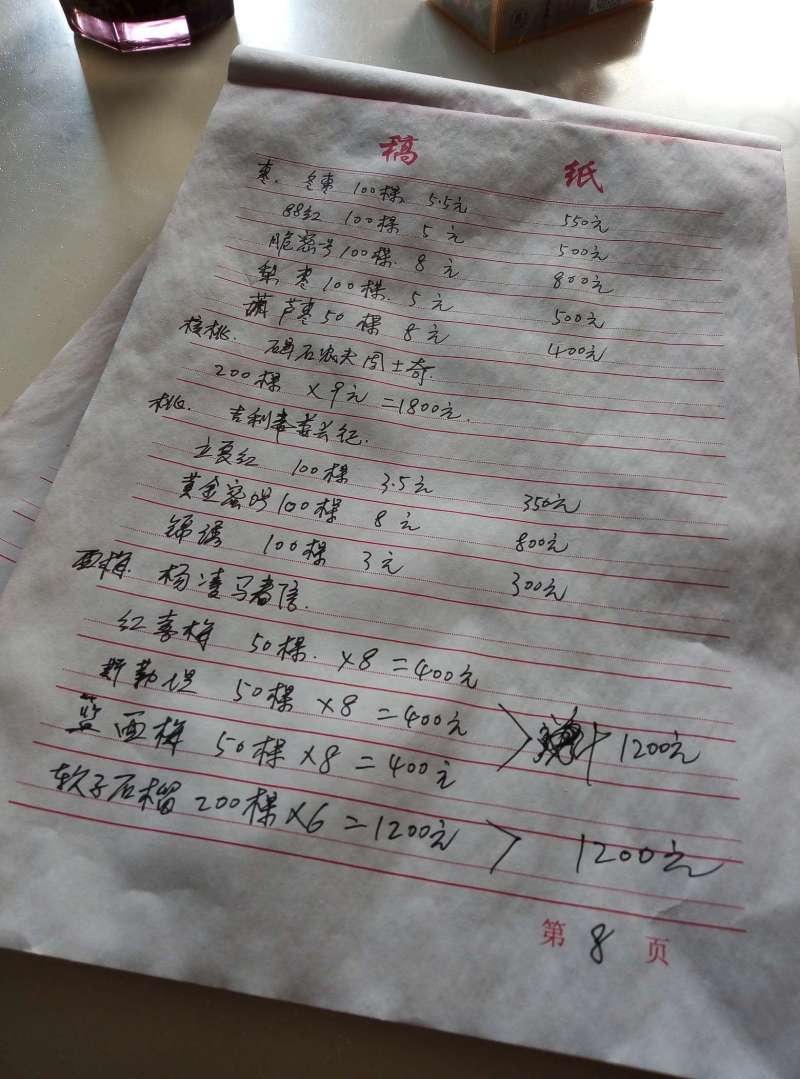 稿 纸
枣. 冬枣 100棵 5.5元 550元
88红 100棵 5元 500元
脆蜜号100棵. 8元 800元
梨枣100棵. 5元 500元
葫芦枣50棵 8元 400元
核桃. 石农夫周士奇.
200棵 ×9元 =1800元.
桃. 吉利
立夏红 100棵 3.5元 350元
黄金蜜 100棵 8元 800元
锦绣 100棵 3元 300元
西梅. 杨凌马
红喜梅 50棵. ×8 =400元
斯勒 50棵 ×8 =400元
蓝西梅 50棵 ×8 =400元 1200元
软子石榴 200棵×6 =1200元 1200元
第 8 页